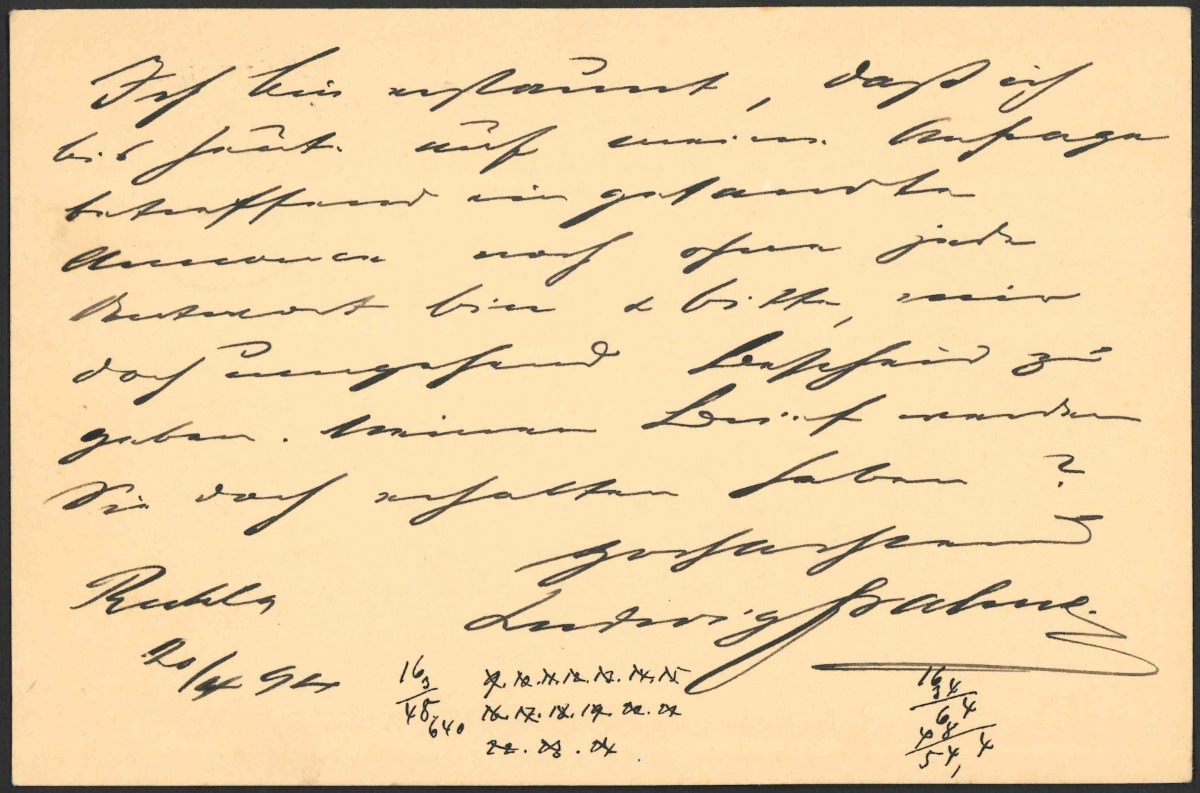 Ich bin erstaunt, daß ich
bis heute auf meine Anfrage
betreffend eingesandte
Annonce noch ohne jede
Antwort bin & bitte, mir
doch umgehend Bescheid zu
geben. Meinen Brief werden
Sie doch erhalten haben?
Hochachtend
Ludwig
Ruhla
20/4 94
16
3
48
640
9. 10. 11. 12. 13. 14. 15
16. 17. 18. 19. 20. 21
22. 23. 24
16
34
64
48
54,4